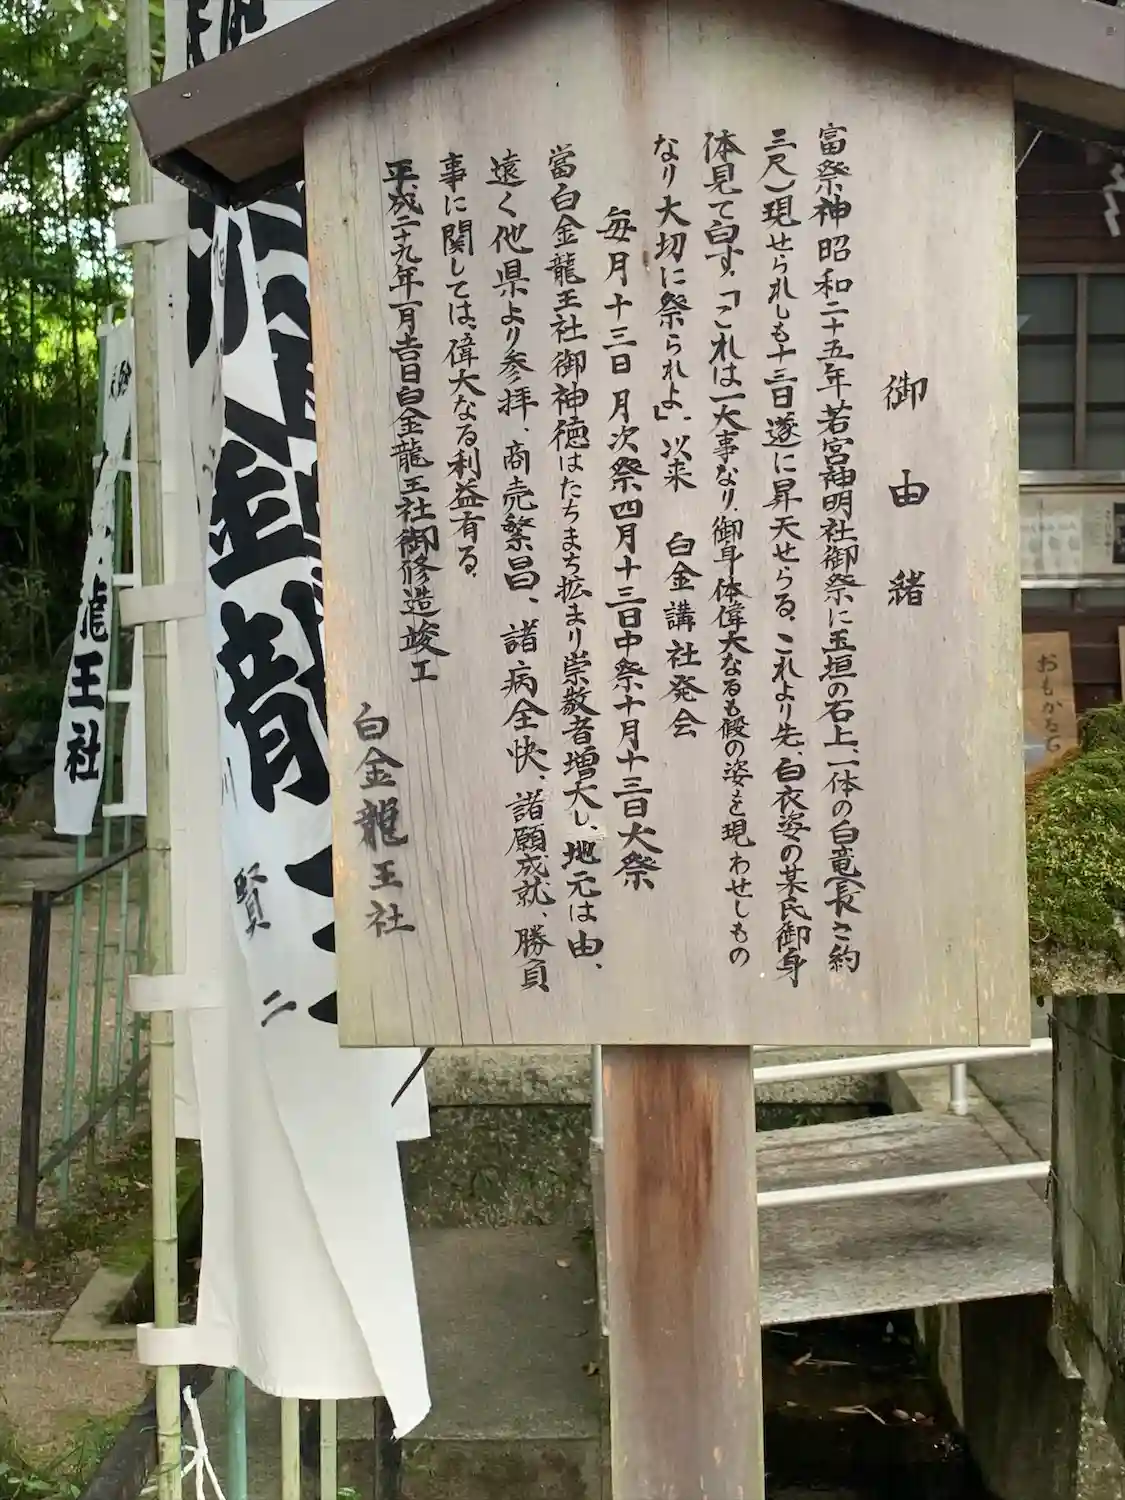 御由緒
當祭神昭和二十五年若宮神明社御祭に玉垣の石上、一体の白竜(長さ約
三尺)現せられしも十三日遂に昇天せらる。これより先、白衣姿の某氏御身
体見て白す、「これは一大事なり、御身体偉大なるも假の姿を現わせしもの
なり大切に祭られよ」、以来 白金講社発会
毎月十三日月次祭四月十三日中祭十月十三日大祭
當白金龍王社御神徳はたちまち拡まり崇敬者増大し、地元は由、
遠く他県より参拝、商売繁昌、諸病全快、諸願成就、勝負
事に関しては、偉大なる利益有る。
平成二十九年一月吉日白金龍王社御修造竣工
白金龍王社
金龍
賢二
龍王社
おもかる石